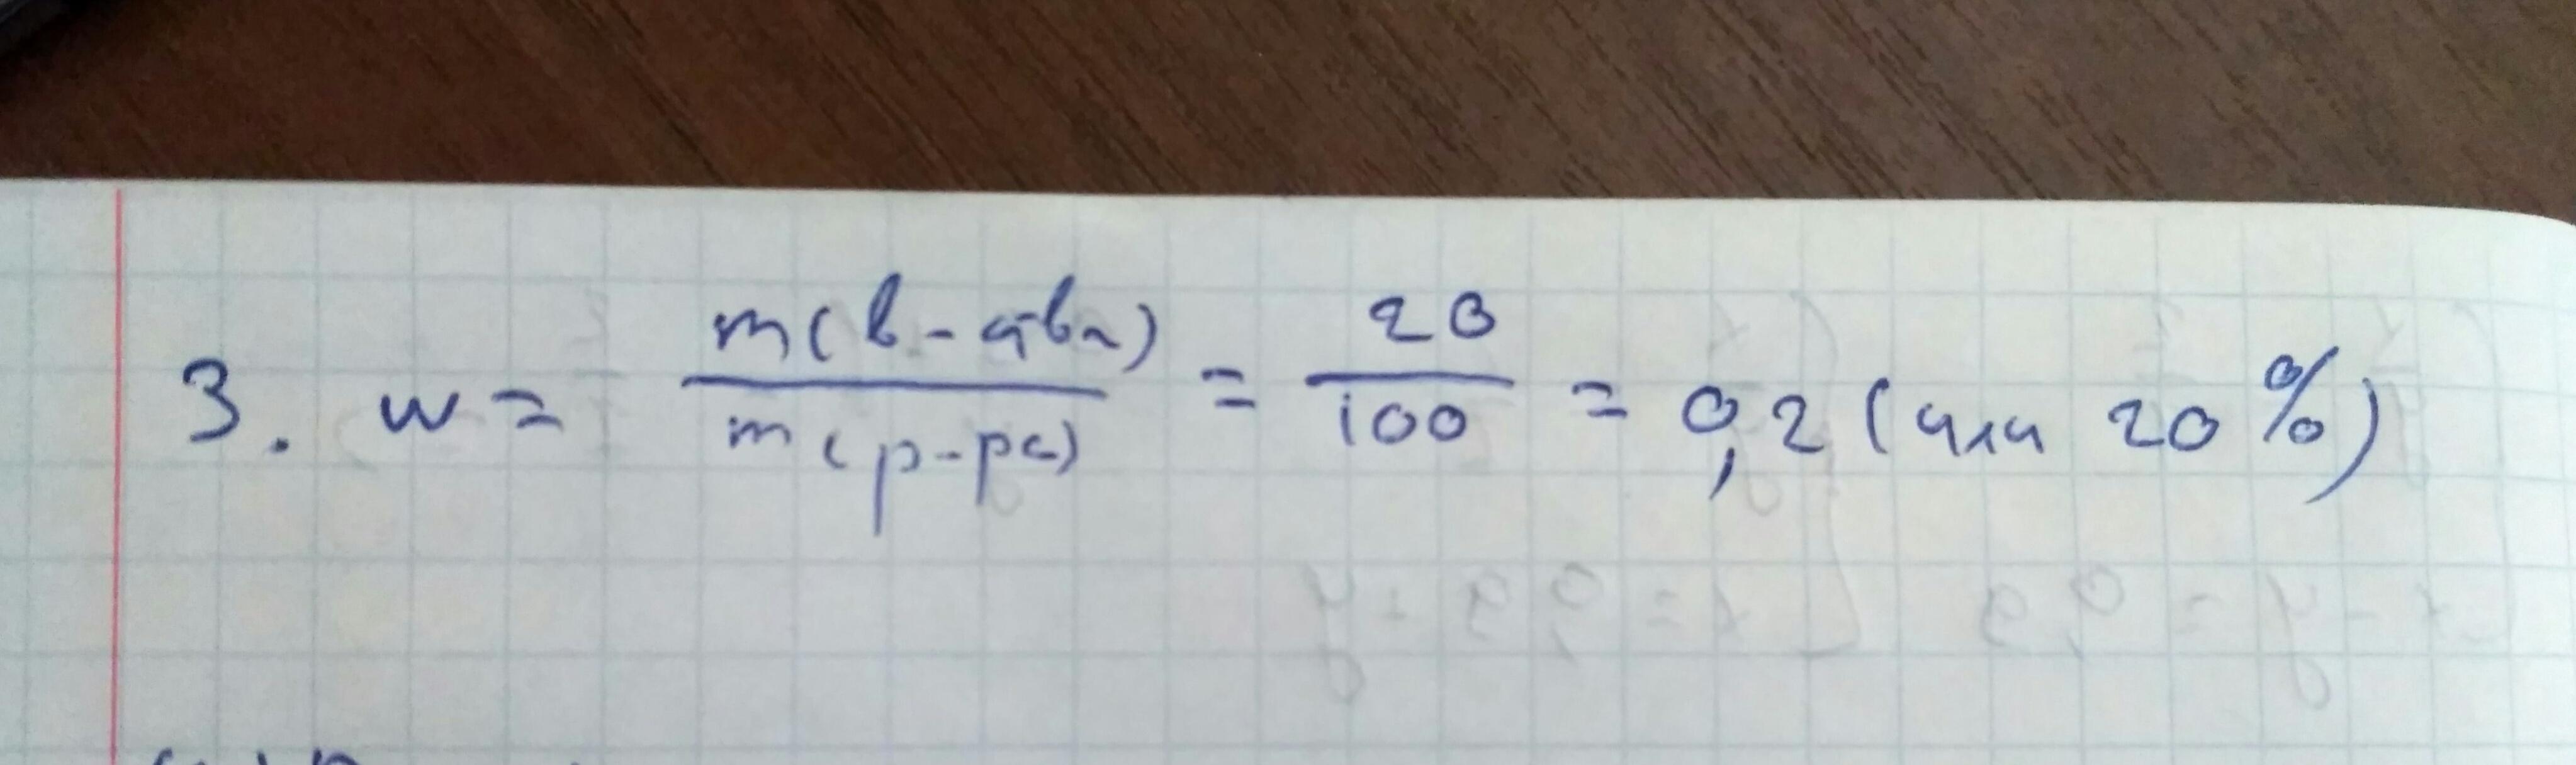 3. w = m(в-ства) / m(р-ра) = 20 / 100 = 0,2 (или 20%)